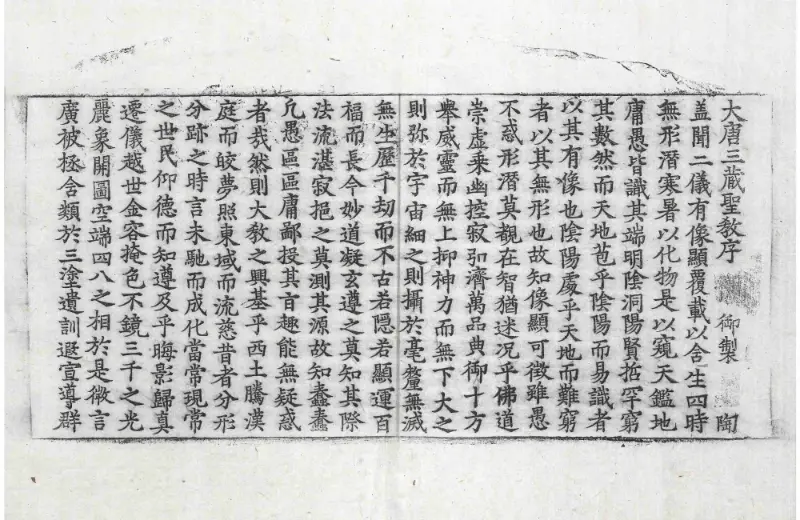 大唐三藏聖教序 御製 陶
盖聞二儀有像顯覆載以含生四時
無形潛寒暑以化物是以窺天鑑地
庸愚皆識其端明陰洞陽賢哲罕窮
其數然而天地苞乎陰陽而易識者
以其有像也陰陽處乎天地而難窮
者以其無形也故知像顯可徵雖愚
不惑形潛莫覩在智猶迷況乎佛道
崇虛乘幽控寂弘濟萬品典御十方
舉威靈而無上抑神力而無下大之
則弥於宇宙細之則攝於毫釐無滅
無生歷千劫而不古若隱若顯運百
福而長今妙道凝玄遵之莫知其際
法流湛寂挹之莫測其源故知蠢蠢
凡愚區區庸鄙投其旨趣能無疑惑
者哉然則大教之興基乎西土騰漢
庭而皎夢照東域而流慈昔者分形
分跡之時言未馳而成化當常現常
之世民仰德而知遵及乎晦影歸真
遷儀越世金容掩色不鏡三千之光
麗象開圖空端四八之相於是微言
廣被拯含類於三塗遺訓遐宣導群